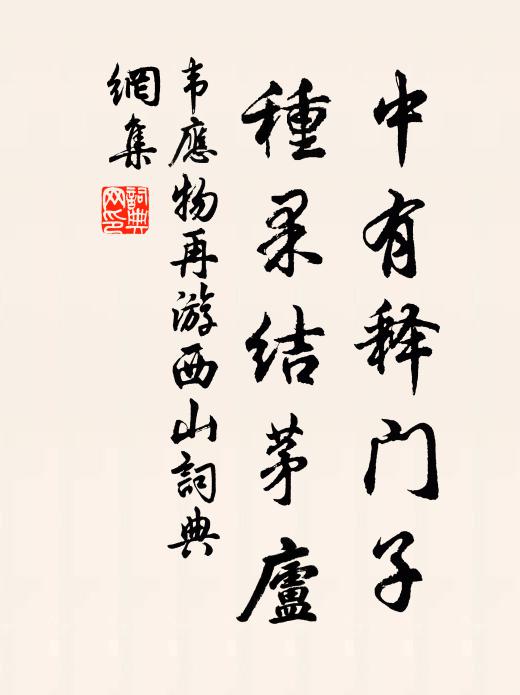 中有释门子
種果结茅廬
韦應物再游西山詞典
網集
詞典
网印